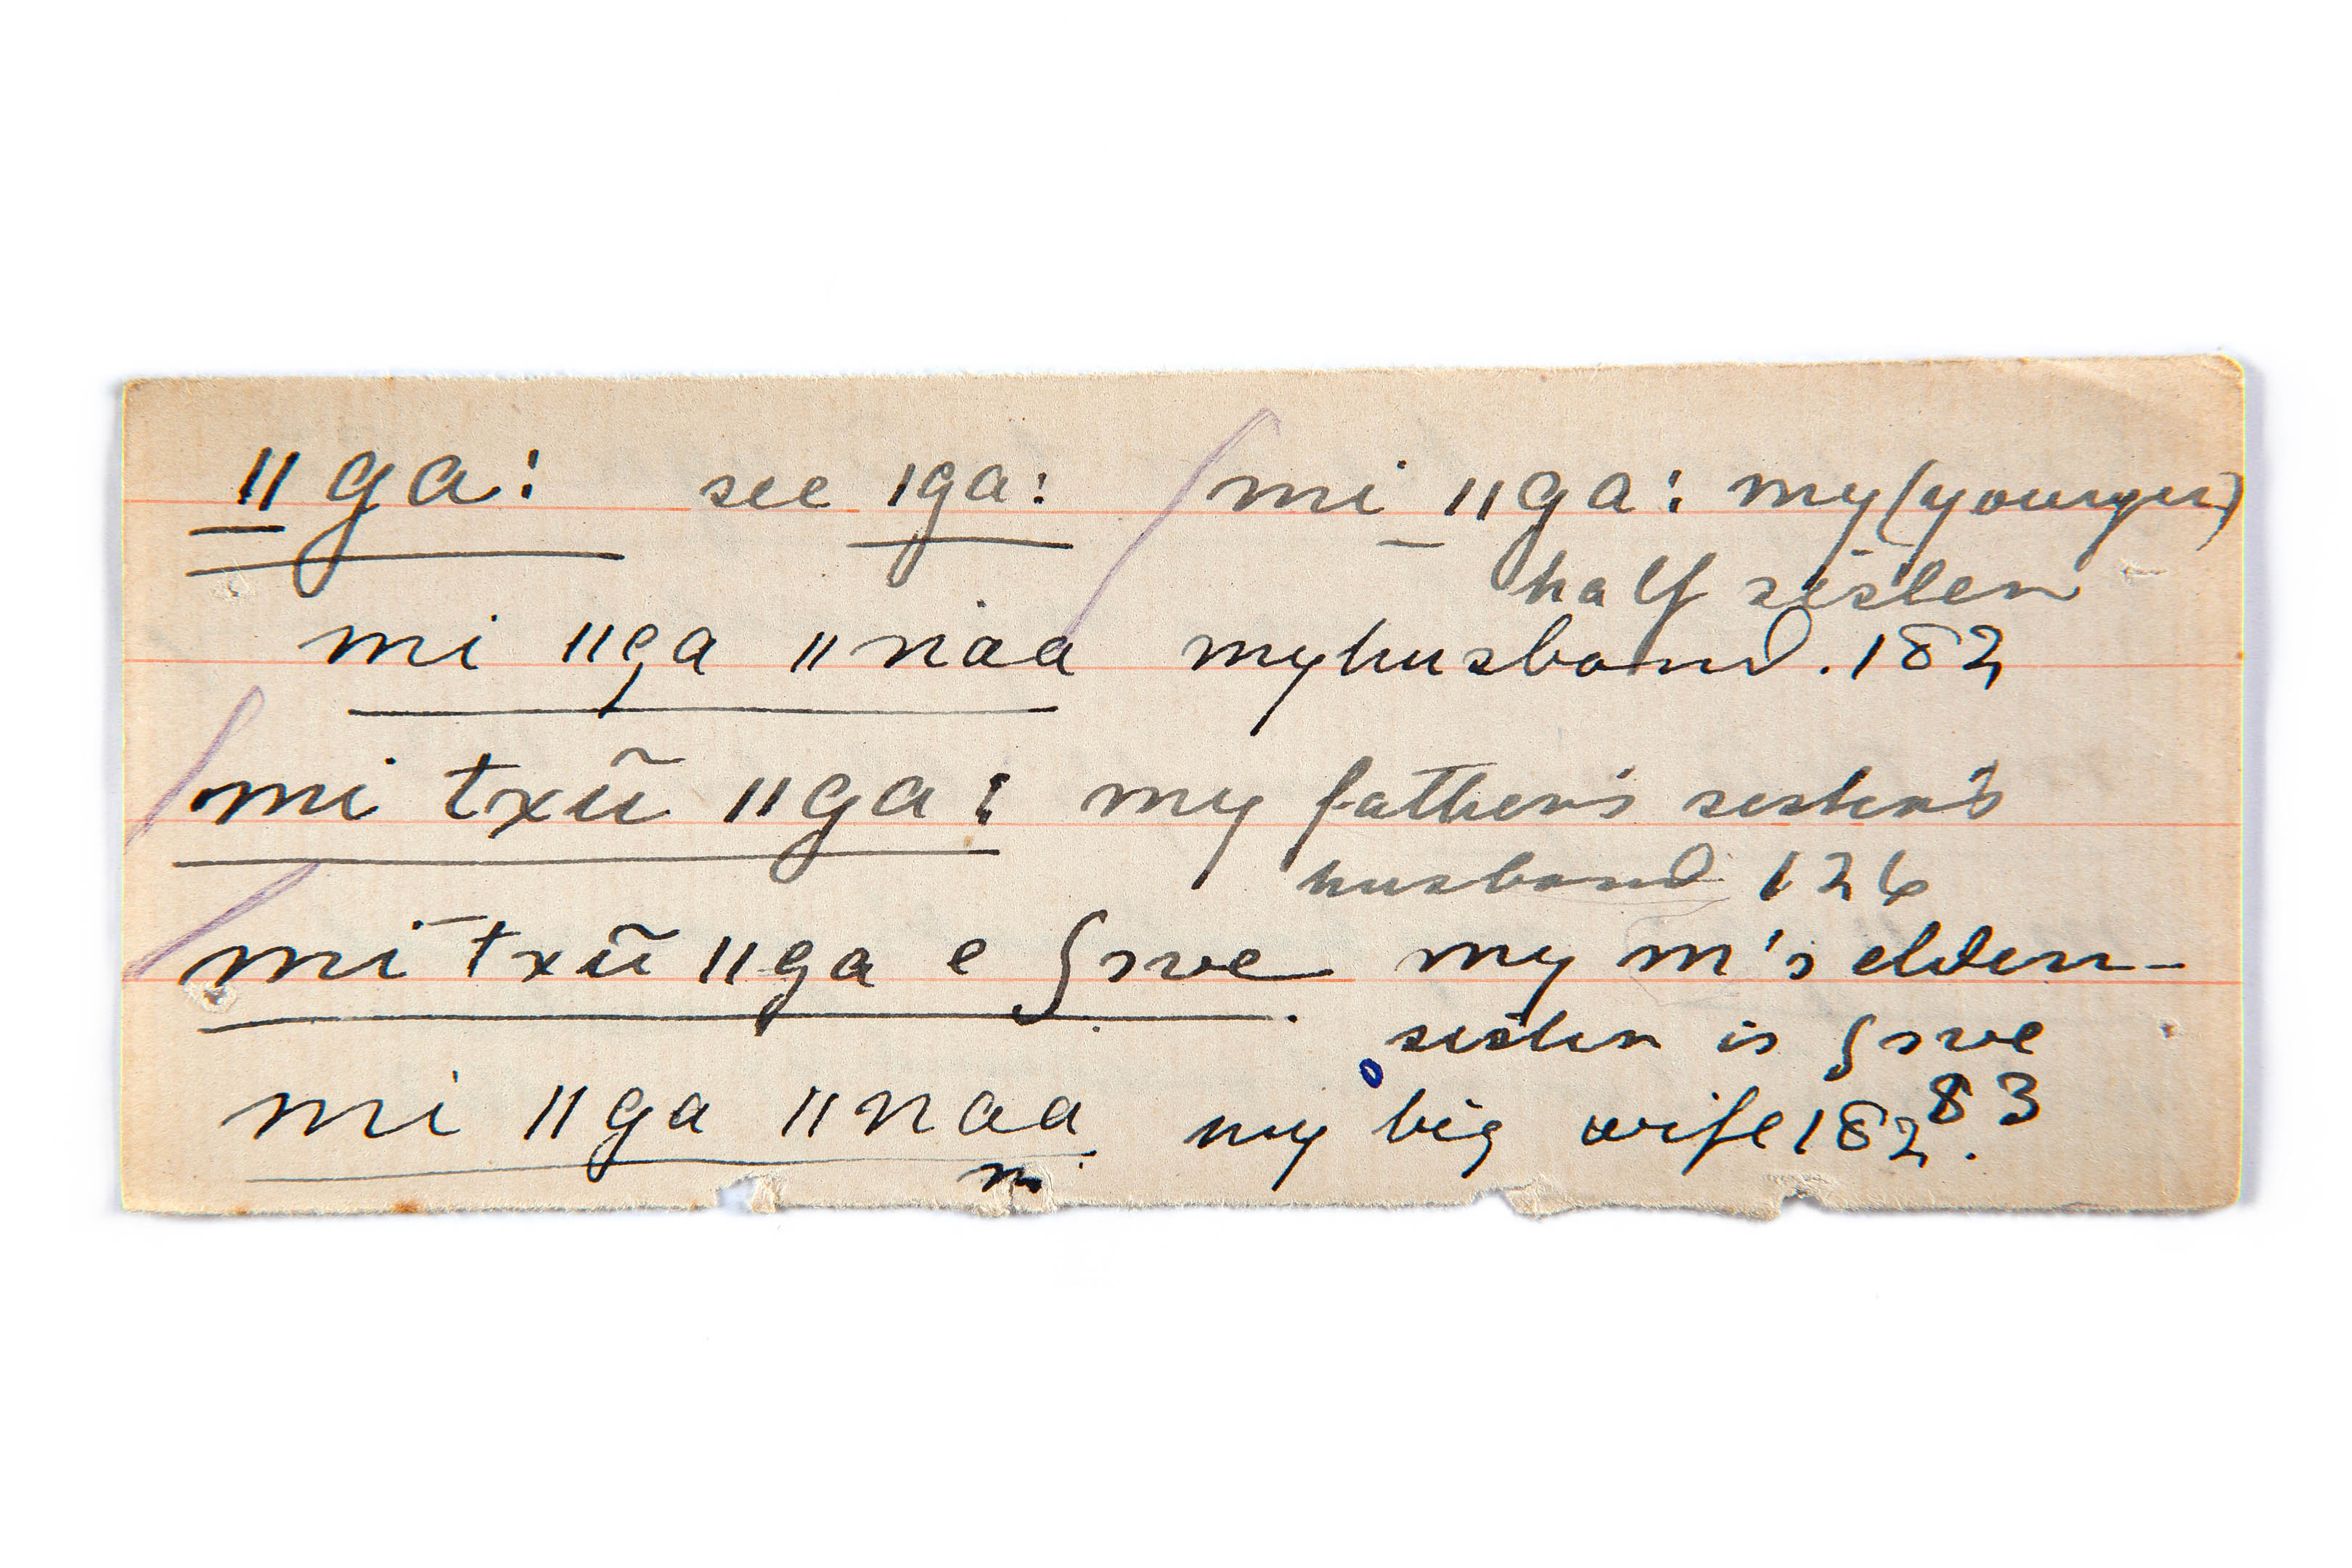 ǁga: see ǀga: mi ǁga: my (younger)
half sister
mi ǁga ǁnaa my husband. 182
mi txũ ǁga: my father's sister's
husband 126
mi txũ ǁga e ʃrve my m's elder-
sister is ʃrve
83
mi ǁga ǁnaa my big wife 182.
m